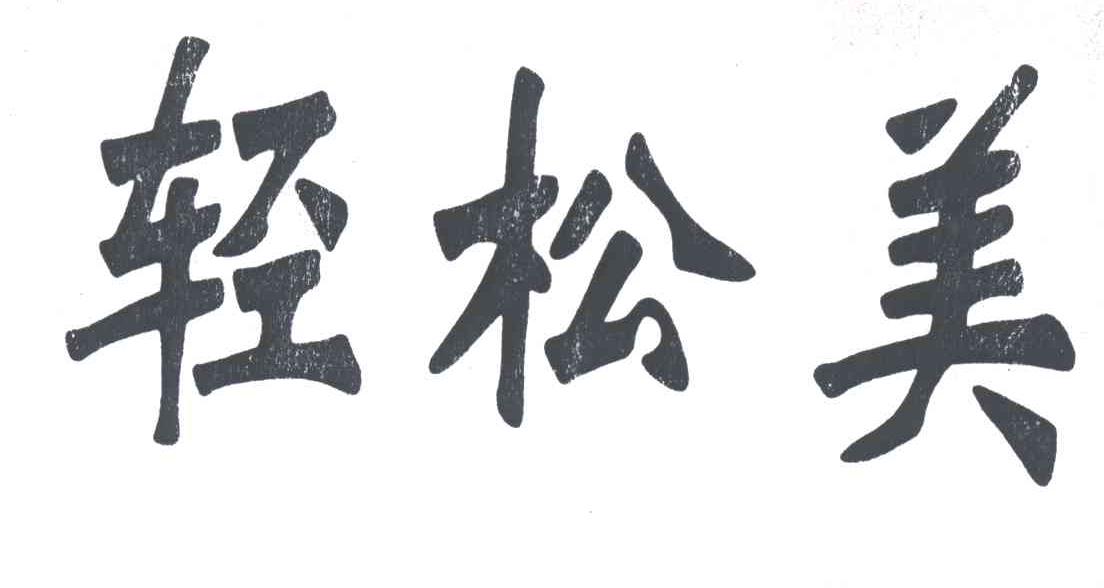 轻松美